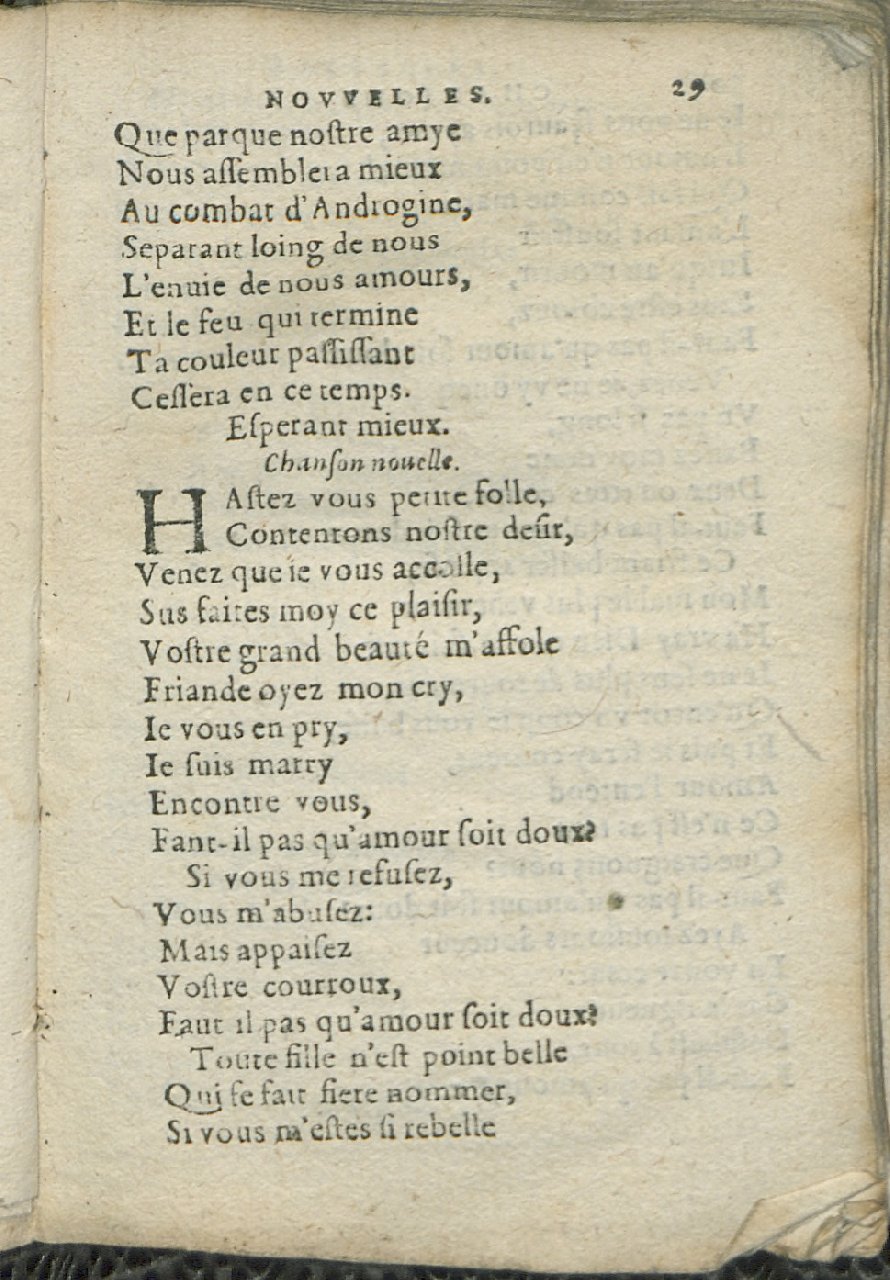 NOVVELLES. 29
Que parque noſtre amye
Nous aſſemblera mieux
Au combat d'Androgine,
Separant loing de nous
L'enuie de nous amours,
Et le feu qui termine
Ta couleur paſſiſſant
Ceſſera en ce temps.
Eſperant mieux.
Chanſon nouelle.
HAſtez vous petite folle,
Contentons noſtre deſir,
Venez que ie vous accolle,
Sus faites moy ce plaiſir,
Voſtre grand beauté m'affole
Friande oyez mon cry,
Ie vous en pry,
Ie ſuis marry
Encontre vous,
Fant-il pas qu'amour ſoit doux?
Si vous me refuſez,
Vous m'abuſez:
Mais appaiſez
Voſtre courroux,
Faut il pas qu'amour ſoit doux?
Toute fille n'eſt point belle
Qui ſe fait fiere nommer,
Si vous m'eſtes ſi rebelle